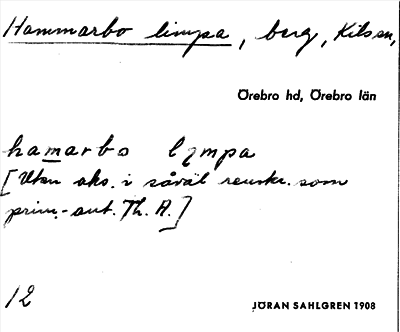 Hammarbo limpa, berg, Kilsen,
Örebro hd, Örebro län
hamarbo lympa
[Utan aks. i såväl renskr. som
prim.-ant. Th. A.]
12
JÖRAN SAHLGREN 1908